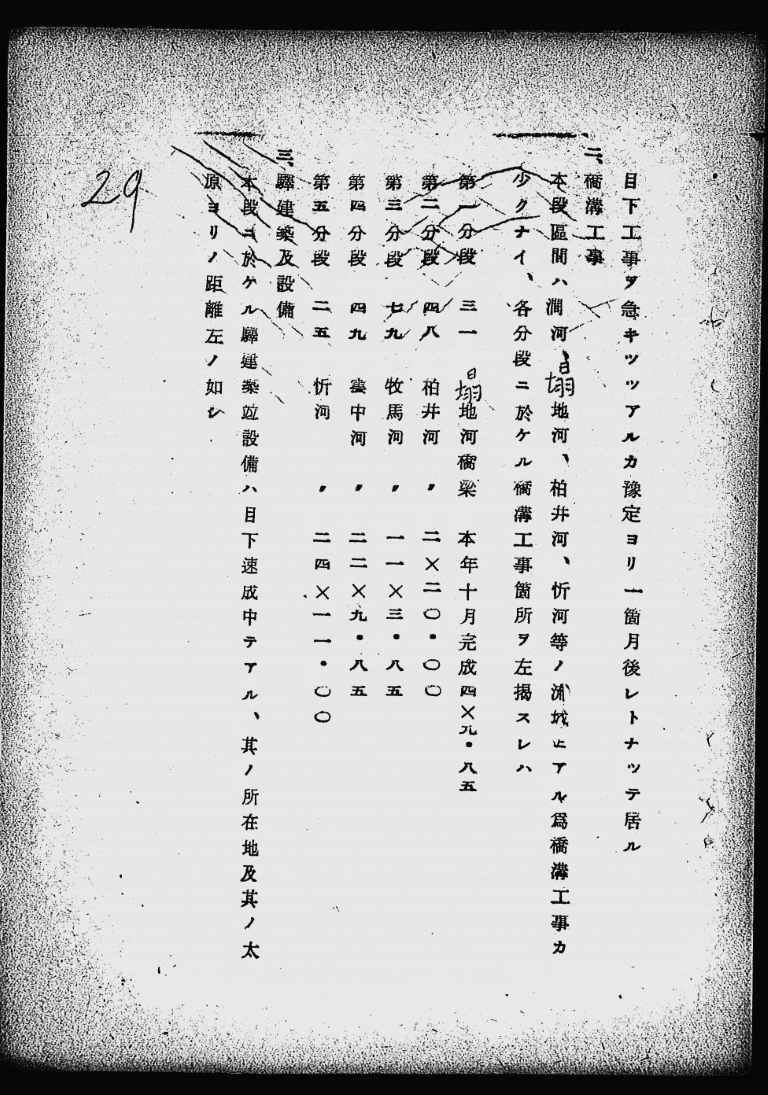 目下工事ヲ急キツツアルカ豫定ヨリ一箇月後レトナッテ居ル
二、橋溝工事
本段區間ハ澗河、塌地河、柏井河、忻河等ノ流域ニアル爲橋溝工事カ
少クナイ、各分段ニ於ケル橋溝工事箇所ヲ左揭スレハ
第一分段 三一 塌地河橋梁 本年十月完成四×九・八五
第二分段 四八 柏井河 〃 二×二〇・〇〇
第三分段 七九 牧馬河 〃 一一×三・八五
第四分段 四九 雲中河 〃 二二×九・八五
第五分段 二五 忻河 〃 二四×一一・〇〇
三、驛建築及設備
本段ニ於ケル驛建築竝設備ハ目下速成中テアル、其ノ所在地及其ノ太
原ヨリノ距離左ノ如シ
29